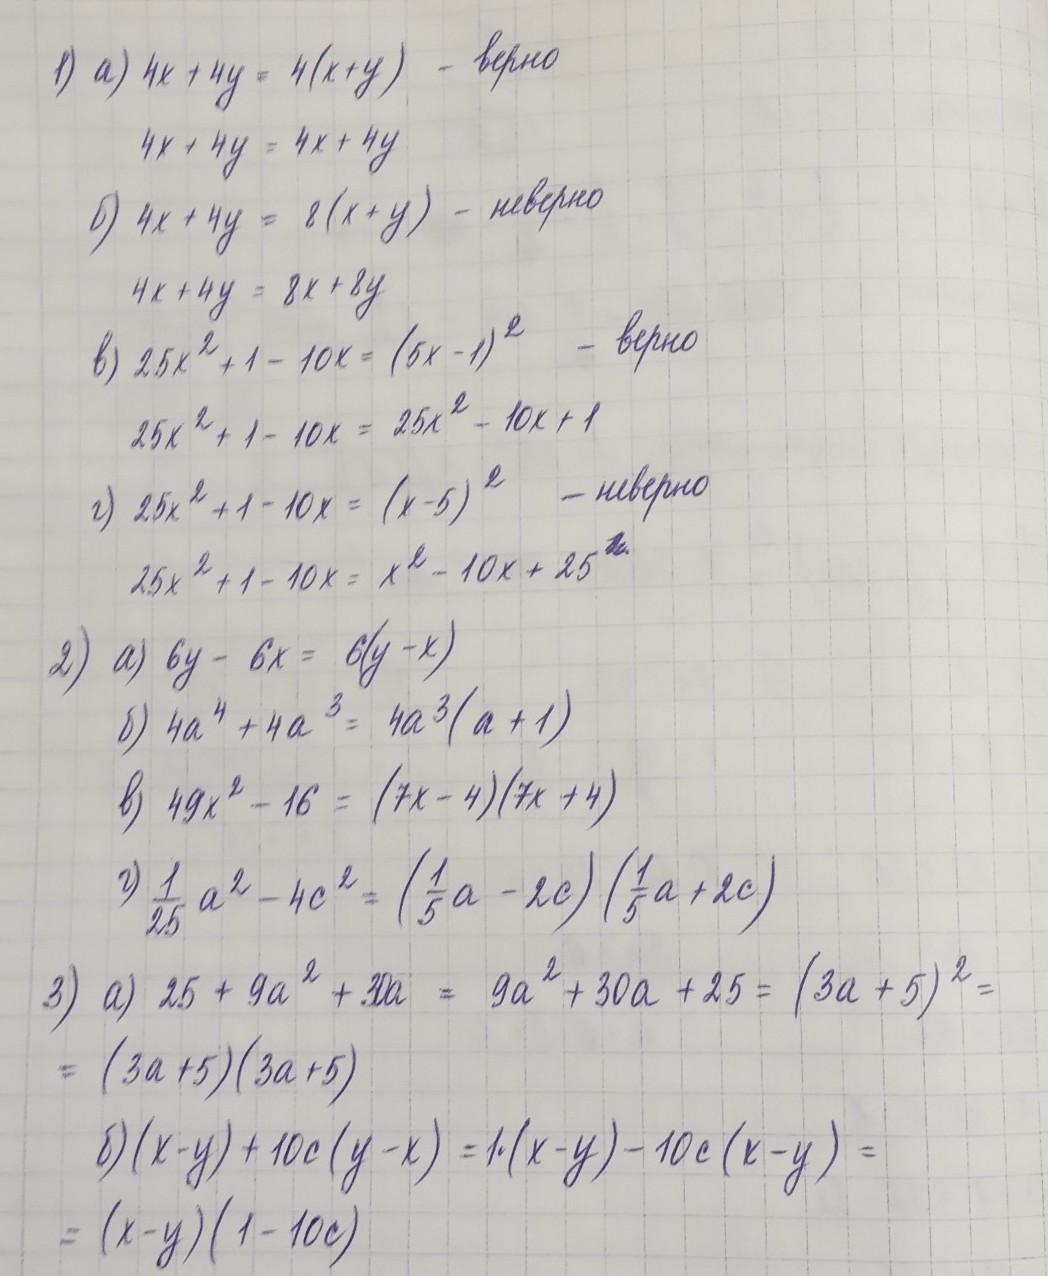 1) а) 4x + 4y = 4(x+y) - верно
4x + 4y = 4x + 4y
б) 4x + 4y = 8(x + y) - неверно
4x + 4y = 8x + 8y
в) 25x² + 1 - 10x = (5x - 1)² - верно
25x² + 1 - 10x = 25x² - 10x + 1
г) 25x² + 1 - 10x = (x-5)² - неверно
25x² + 1 - 10x = x² - 10x + 25
2) а) 6y - 6x = 6(y - x)
б) 4a⁴ + 4a³ = 4a³(a + 1)
в) 49x² - 16 = (7x - 4)(7x + 4)
г) 1/25 a² - 4c² = (1/5 a - 2c)(1/5 a + 2c)
3) а) 25 + 9a² + 30a = 9a² + 30a + 25 = (3a + 5)² =
= (3a+5)(3a+5)
б) (x-y) + 10c(y-x) = 1·(x-y) - 10c(x-y) =
= (x-y)(1 - 10c)